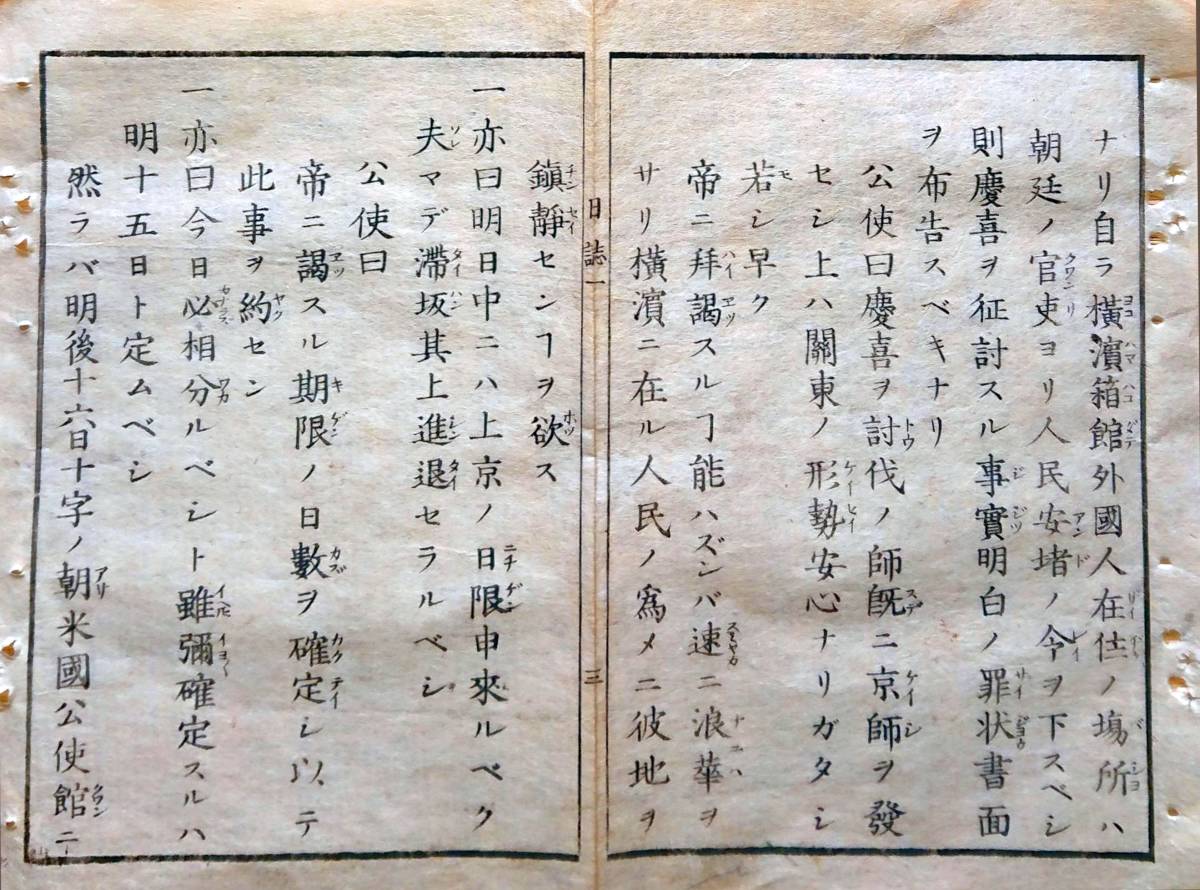 ナリ自ラ橫濱箱館外國人在住ノ塲所ハ
朝廷ノ官吏ヨリ人民安堵ノ令ヲ下スベシ
則慶喜ヲ征討スル事實明白ノ罪状書面
ヲ布告スベキナリ
公使曰慶喜ヲ討伐ノ師既ニ京師ヲ發
セシ上ハ關東ノ形勢安心ナリガタシ
若シ早ク
帝ニ拜謁スルヿ能ハズンバ速ニ浪華ヲ
サリ橫濱ニ在ル人民ノ爲メニ彼地ヲ
日誌一
三
鎭靜センヿヲ欲ス
一亦曰明日中ニハ上京ノ日限申來ルベク
夫マデ滯坂其上進退セラルベシ
公使曰
帝ニ謁スル期限ノ日數ヲ確定シ以テ
此事ヲ約セン
一亦曰今日必相分ルベシト雖彌確定スルハ
明十五日ト定ムベシ
然ラバ明後十六日十字ノ朝米國公使館ニ